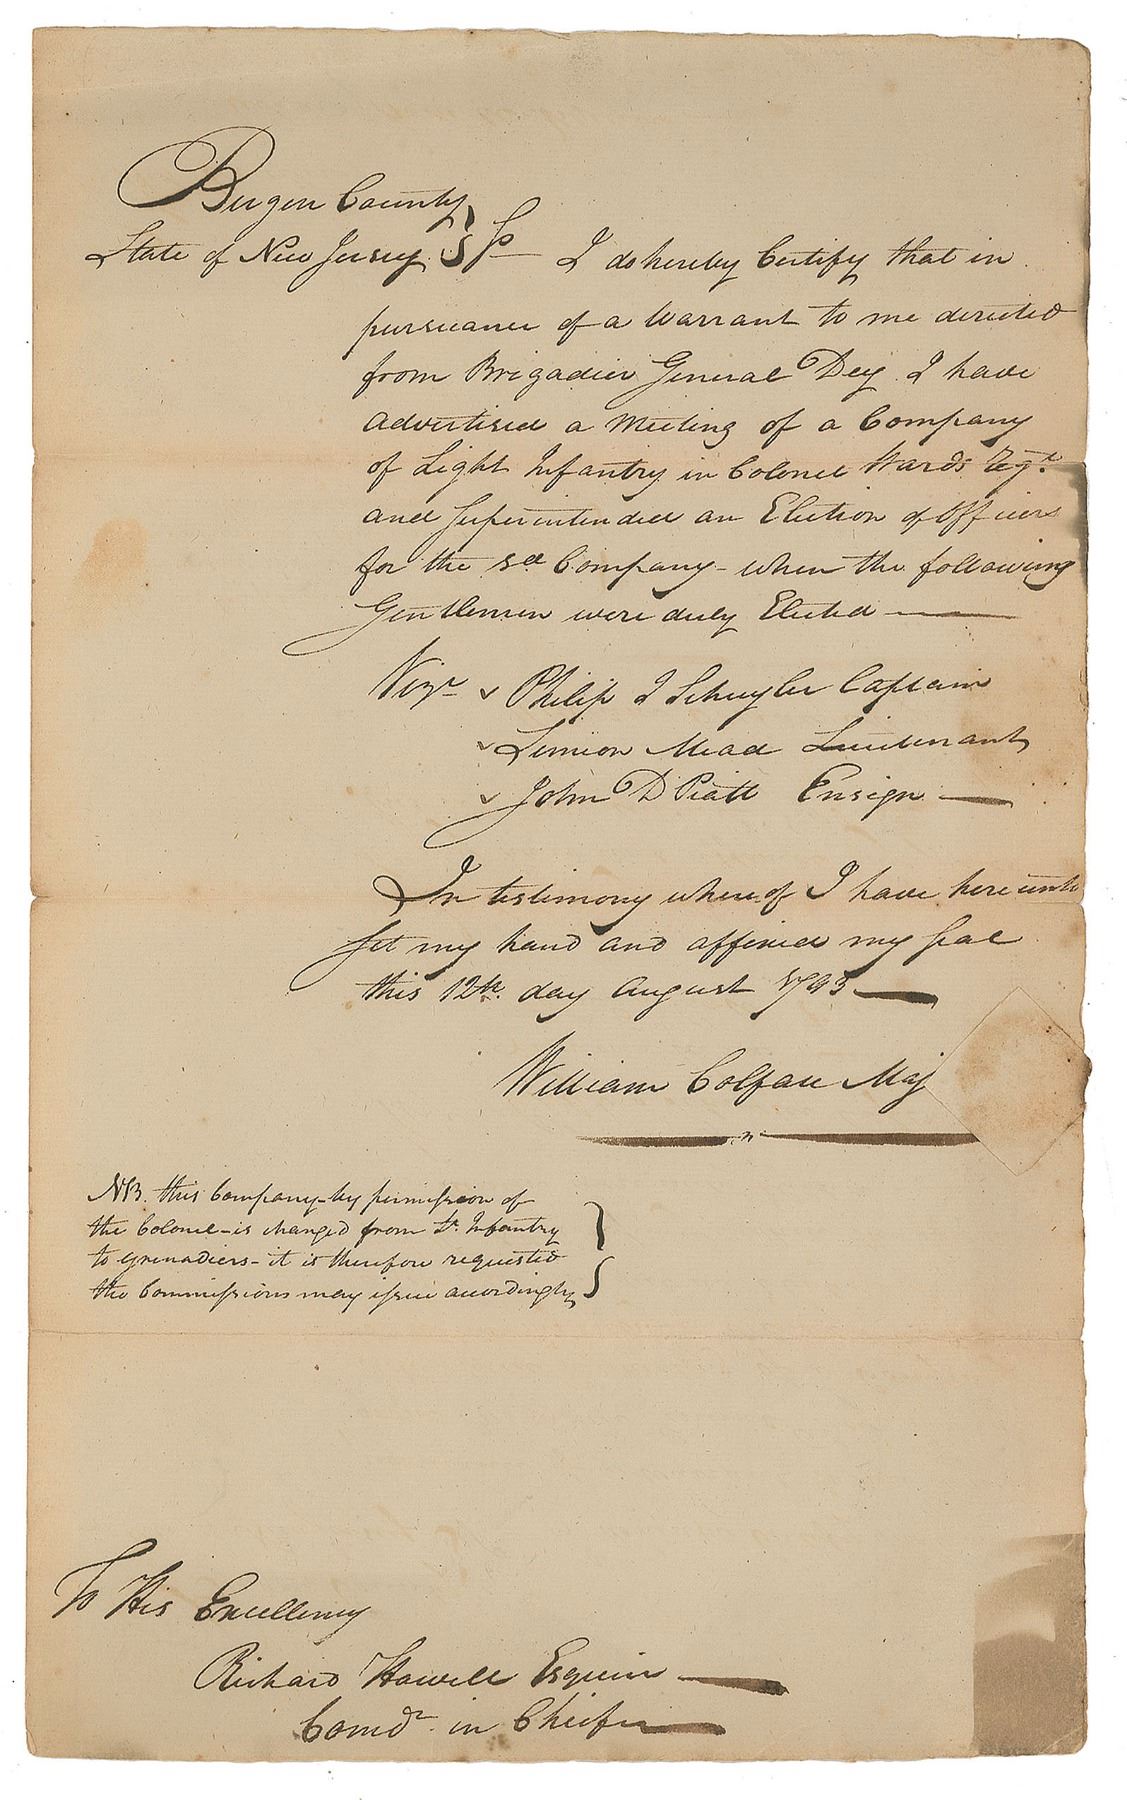 Bergen County
State of New Jersey } Ss I do hereby Certify that in
pursuance of a Warrant to me directed
from Brigadier General Dey I have
advertised a Meeting of a Company
of Light Infantry in Colonel Wards Regt
and Superintended an Election of Officers
for the sd Company - when the following
Gentlemen were duly Elected
Vizt Philip I Schuyler Captain
Simion Mead Lieutenant
John D Piatt Ensign
In testimony where of I have here unto
set my hand and affixed my seal
this 12th. day August 1793
William Colfax Maj
NB. this Company - by permission of
the Colonel - is changed from Lt. Infantry
to grenadiers - it is therefore requested
the Commissions may issue accordingly
To His Excellency
Richard Howell Esquire
Comdr in Chief